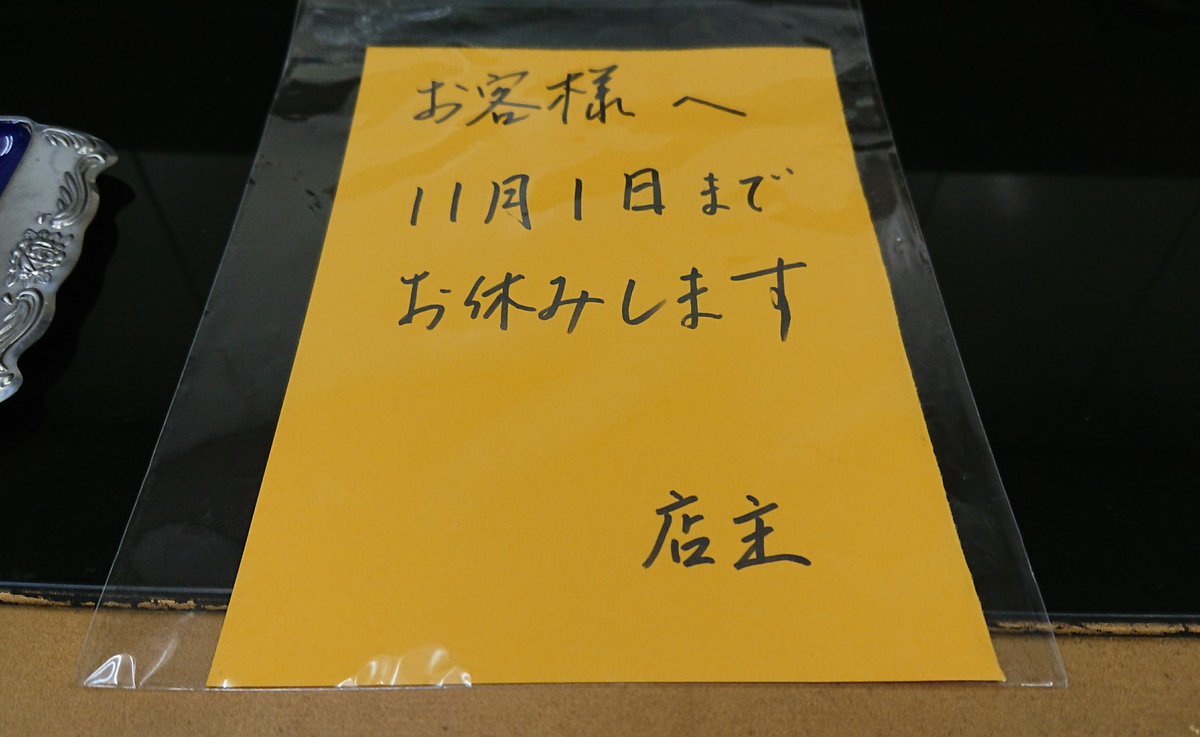 お客様へ
11月1日まで
お休みします
店主